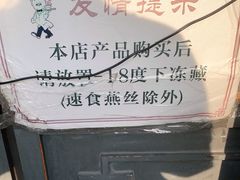 友情提示
本店产品购买后
请放置-18度下冻藏
(速食燕丝除外)